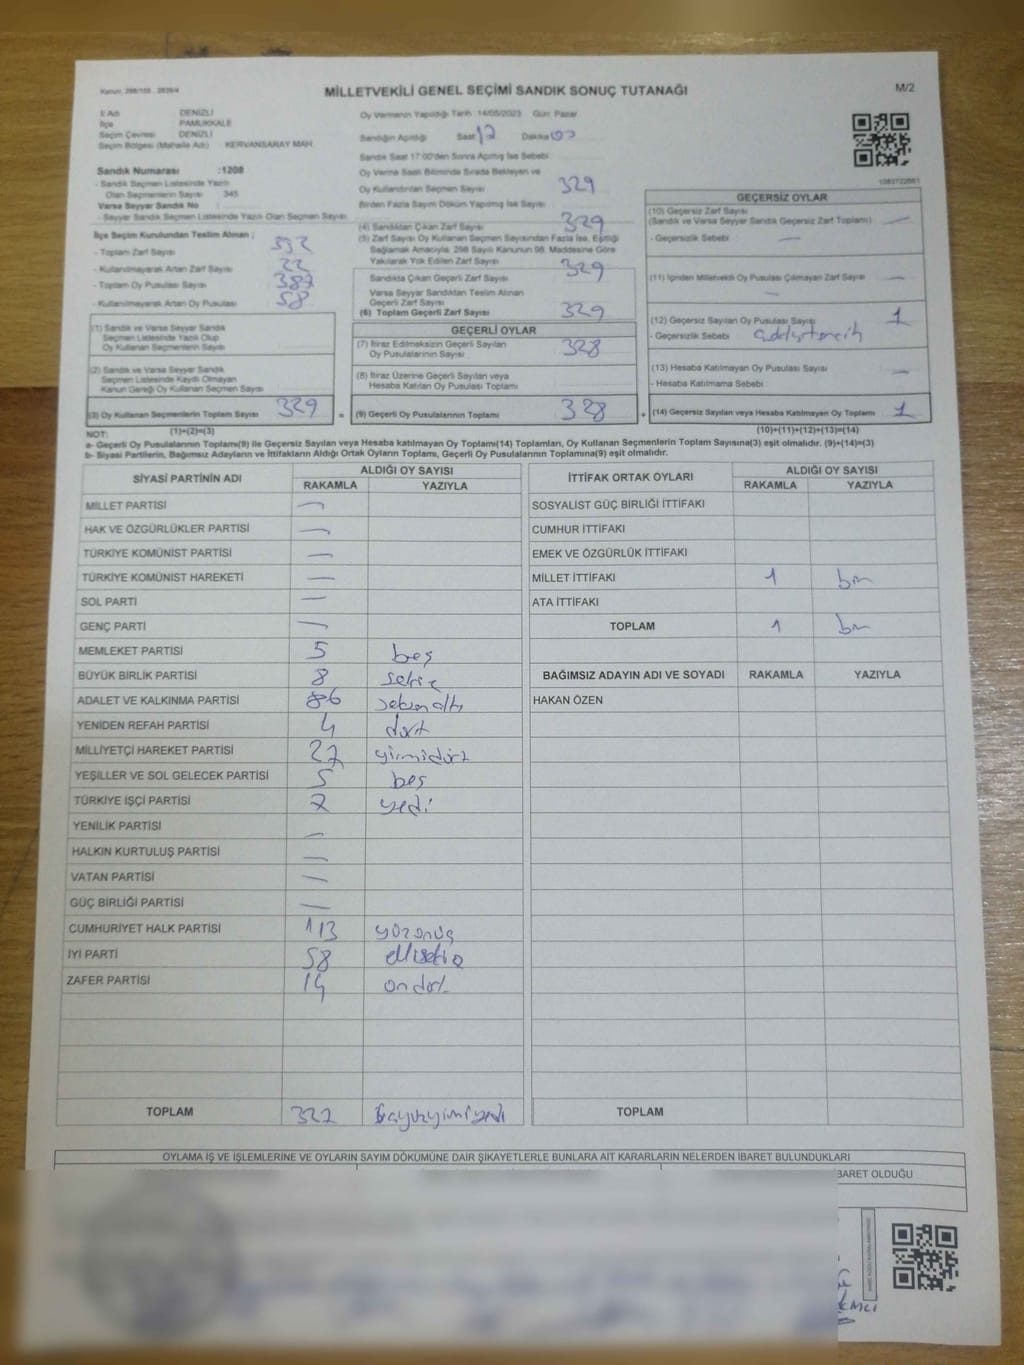 Kanun, 298/105 , 2839/4
MİLLETVEKİLİ GENEL SEÇİMİ SANDIK SONUÇ TUTANAĞI
M/2
İl Adı DENİZLİ
İlçe PAMUKKALE
Seçim Çevresi DENİZLİ
Seçim Bölgesi (Mahalle Adı) KERVANSARAY MAH.
Sandık Numarası :1208
- Sandık Seçmen Listesinde Yazılı
Olan Seçmenlerin Sayısı 345
Varsa Seyyar Sandık No
- Seyyar Sandık Seçmen Listesinde Yazılı Olan Seçmen Sayısı
İlçe Seçim Kurulundan Teslim Alınan ;
- Toplam Zarf Sayısı
- Kullanılmayarak Artan Zarf Sayısı 22
- Toplam Oy Pusulası Sayısı 387
- Kullanılmayarak Artan Oy Pusulası 58
(1) Sandık ve Varsa Seyyar Sandık
Seçmen Listesinde Yazılı Olup
Oy Kullanan Seçmenlerin Sayısı
(2) Sandık ve Varsa Seyyar Sandık
Seçmen Listesinde Kayıtlı Olmayan
Kanun Gereği Oy Kullanan Seçmen Sayısı
(3) Oy Kullanan Seçmenlerin Toplam Sayısı 329 =
(1)+(2)=(3)
Oy Vermenin Yapıldığı Tarih 14/05/2023 Gün: Pazar
Sandığın Açıldığı Saat 17 Dakika 00
Sandık Saat 17:00'den Sonra Açılmış İse Sebebi
Oy Verme Saati Bitiminde Sırada Bekleyen ve
Oy Kullandırılan Seçmen Sayısı 329
Birden Fazla Sayım Döküm Yapılmış İse Sayısı
(4) Sandıktan Çıkan Zarf Sayısı 329
(5) Zarf Sayısı Oy Kullanan Seçmen Sayısından Fazla İse, Eşitliği
Sağlamak Amacıyla, 298 Sayılı Kanunun 98. Maddesine Göre
Yakılarak Yok Edilen Zarf Sayısı
Sandıkta Çıkan Geçerli Zarf Sayısı 329
Varsa Seyyar Sandıktan Teslim Alınan
Geçerli Zarf Sayısı
(6) Toplam Geçerli Zarf Sayısı 329
GEÇERLİ OYLAR
(7) İtiraz Edilmeksizin Geçerli Sayılan
Oy Pusulalarının Sayısı 328
(8) İtiraz Üzerine Geçerli Sayılan veya
Hesaba Katılan Oy Pusulası Toplamı
(9) Geçerli Oy Pusulalarının Toplamı 328 +
1083722661
GEÇERSİZ OYLAR
(10) Geçersiz Zarf Sayısı
(Sandık ve Varsa Seyyar Sandık Geçersiz Zarf Toplamı) —
- Geçersizlik Sebebi —
(11) İçinden Milletvekili Oy Pusulası Çıkmayan Zarf Sayısı —
—
(12) Geçersiz Sayılan Oy Pusulası Sayısı 1
- Geçersizlik Sebebi
(13) Hesaba Katılmayan Oy Pusulası Sayısı —
- Hesaba Katılmama Sebebi
(14) Geçersiz Sayılan veya Hesaba Katılmayan Oy Pusulası Toplamı 1
(10)+(11)+(12)+(13)=(14)
NOT:
a- Geçerli Oy Pusulalarının Toplamı(9) ile Geçersiz Sayılan veya Hesaba katılmayan Oy Toplamı(14) Toplamları, Oy Kullanan Seçmenlerin Toplam Sayısına(3) eşit olmalıdır. (9)+(14)=(3)
b- Siyasi Partilerin, Bağımsız Adayların ve İttifakların Aldığı Ortak Oyların Toplamı, Geçerli Oy Pusulalarının Toplamına(9) eşit olmalıdır.
SİYASİ PARTİNİN ADI ALDIĞI OY SAYISI
RAKAMLA YAZIYLA
MİLLET PARTİSİ —
HAK VE ÖZGÜRLÜKLER PARTİSİ —
TÜRKİYE KOMÜNİST PARTİSİ —
TÜRKİYE KOMÜNİST HAREKETİ —
SOL PARTİ —
GENÇ PARTİ —
MEMLEKET PARTİSİ 5 beş
BÜYÜK BİRLİK PARTİSİ 8 sekiz
ADALET VE KALKINMA PARTİSİ 86 seksenaltı
YENİDEN REFAH PARTİSİ 4 dört
MİLLİYETÇİ HAREKET PARTİSİ 27 yirmidört
YEŞİLLER VE SOL GELECEK PARTİSİ 5 beş
TÜRKİYE İŞÇİ PARTİSİ 7 yedi
YENİLİK PARTİSİ —
HALKIN KURTULUŞ PARTİSİ —
VATAN PARTİSİ —
GÜÇ BİRLİĞİ PARTİSİ —
CUMHURİYET HALK PARTİSİ 113 yüzonüç
İYİ PARTİ 58 ellisekiz
ZAFER PARTİSİ 14 ondört
TOPLAM 327 üçyüzyirmiyedi
İTTİFAK ORTAK OYLARI ALDIĞI OY SAYISI
RAKAMLA YAZIYLA
SOSYALİST GÜÇ BİRLİĞİ İTTİFAKI
CUMHUR İTTİFAKI
EMEK VE ÖZGÜRLÜK İTTİFAKI
MİLLET İTTİFAKI 1 bir
ATA İTTİFAKI
TOPLAM 1 bir
BAĞIMSIZ ADAYIN ADI VE SOYADI RAKAMLA YAZIYLA
HAKAN ÖZEN
TOPLAM
OYLAMA İŞ VE İŞLEMLERİNE VE OYLARIN SAYIM DÖKÜMÜNE DAİR ŞİKAYETLERLE BUNLARA AİT KARARLARIN NELERDEN İBARET BULUNDUKLARI
BARET OLDUĞU